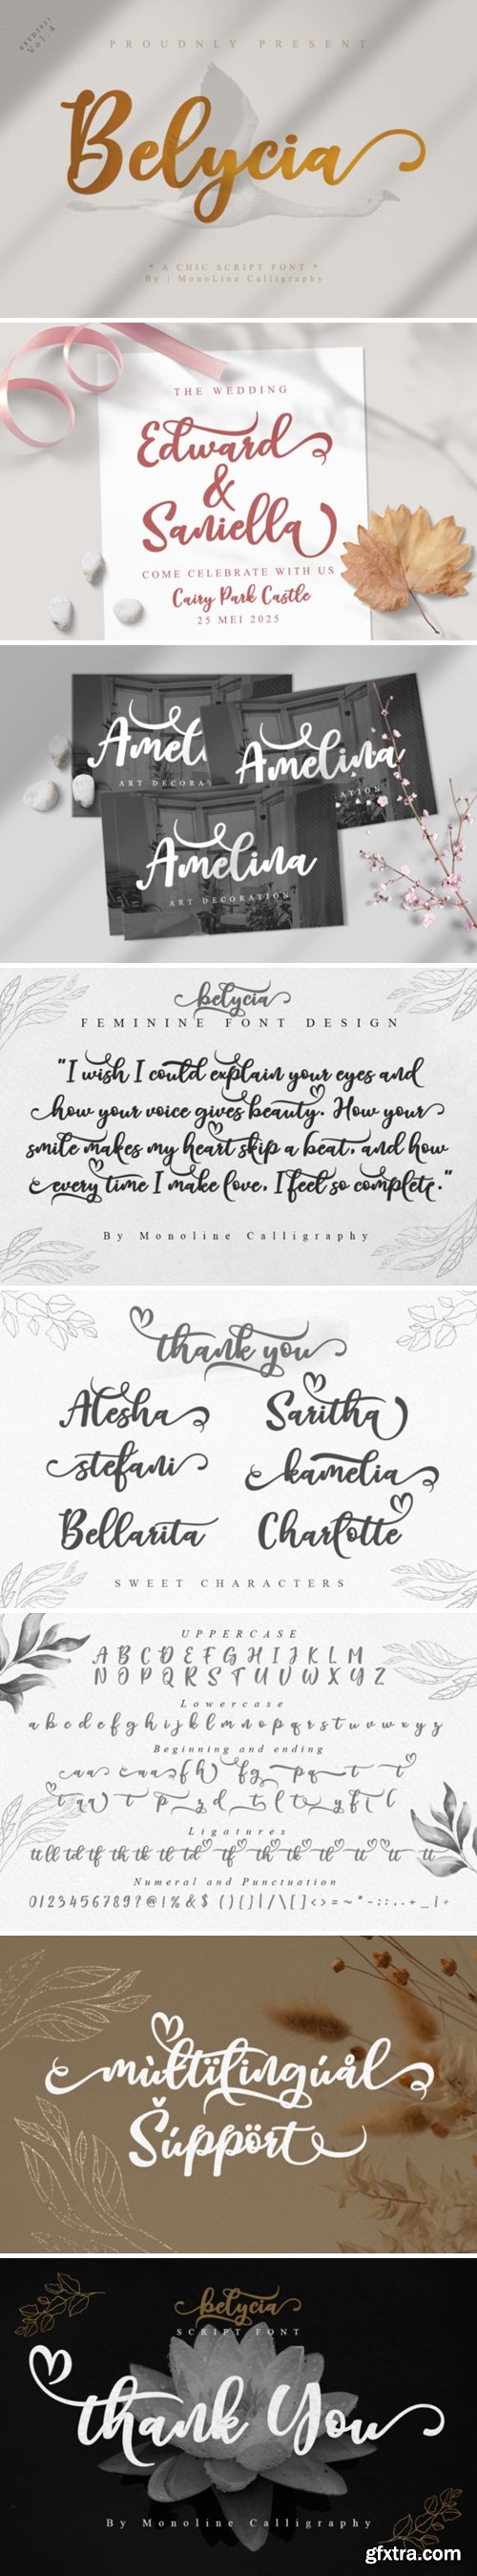 Vol.4
PROUDNLY PRESENT
Belycia
* A CHIC SCRIPT FONT *
By | MonoLine Calligraphy
THE WEDDING
Edward
&
Saniella
COME CELEBRATE WITH US
Cairy Park Castle
25 MEI 2025
Amelina
ART DECORATION
belycia
FEMININE FONT DESIGN
"I wish I could explain your eyes and
how your voice gives beauty. How your
smile makes my heart skip a beat, and how
every time I make love, I feel so complete."
By Monoline Calligraphy
thank you
Alesha Saritha
stefani kamelia
Bellarita Charlotte
SWEET CHARACTERS
UPPERCASE
A B C D E F G H I J K L M
N O P Q R S T U V W X Y Z
Lowercase
a b c d e f g h i j k l m n o p q r s t u v w x y z
Beginning and ending
Ligatures
Numeral and Punctuation
multïlingúål
Šúppört
belycia
SCRIPT FONT
thank You
By Monoline Calligraphy
gfxtra.com